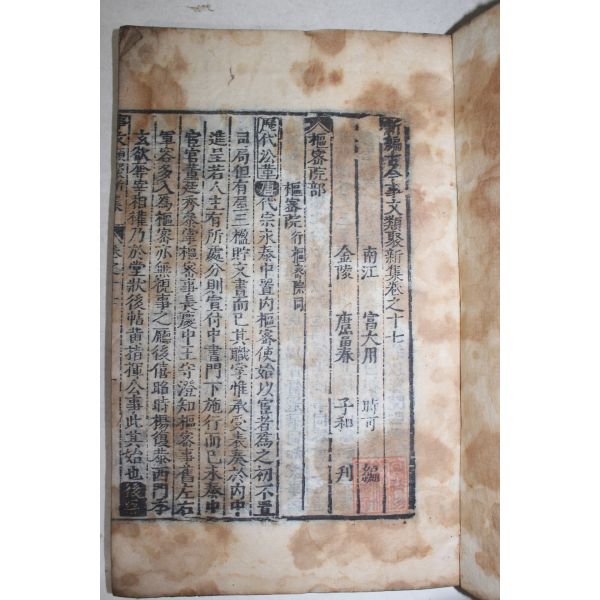 新編古今事文類聚新集卷之十七
南江 富大用 時可 編
金陵 唐富春 子和 刋
樞密院部
樞密院 行樞密院同
歷代沿革 唐代宗永泰中置内樞密使始以宦者為之初不置
司局但有屋三楹貯文書而已其職掌惟承受表奏於内中
進呈若人主有所處分則宣付中書門下施行而已永泰中
宦官董廷秀叅掌樞密事長慶中王守澄知樞密事舊左右
軍容多入為樞密亦無視事之㕔後僖昭時楊復恭西門季
玄欲奪宰相權乃於堂狀後帖黄指揮公事此其始也 後梁
事文類聚新集 卷之十七